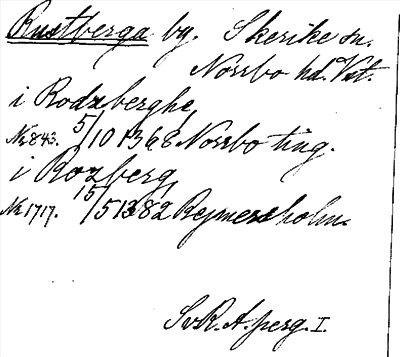 Rustberga by. Skerike sn.
Norrbo hd. Vstm.
i Rodzberghe
Nr 843. 5/10 1368 Norrbo ting.
i Rozberg
Nr 1717. 15/5 1382 Rejmersholm.
SvR. A. perg. I.